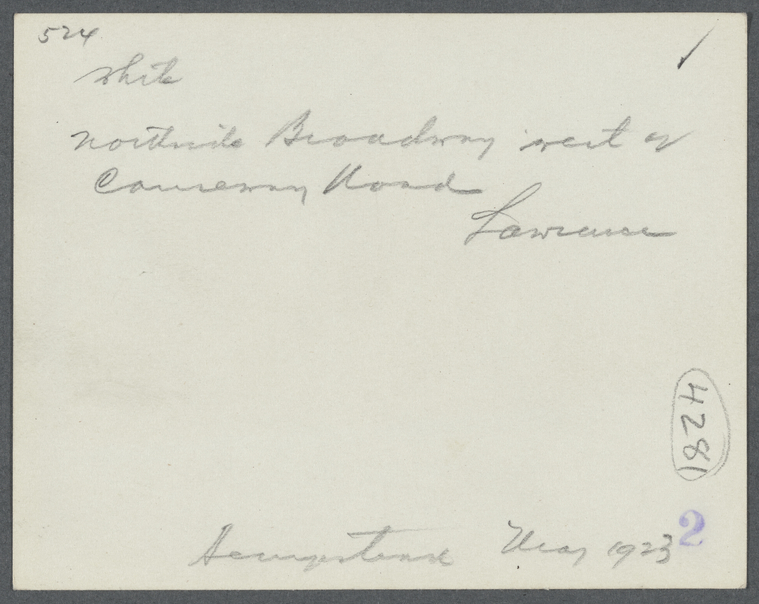 524
White
Northside Broadway west of
Causeway Road
Lawrence
4281
Hempstead May 1923
2